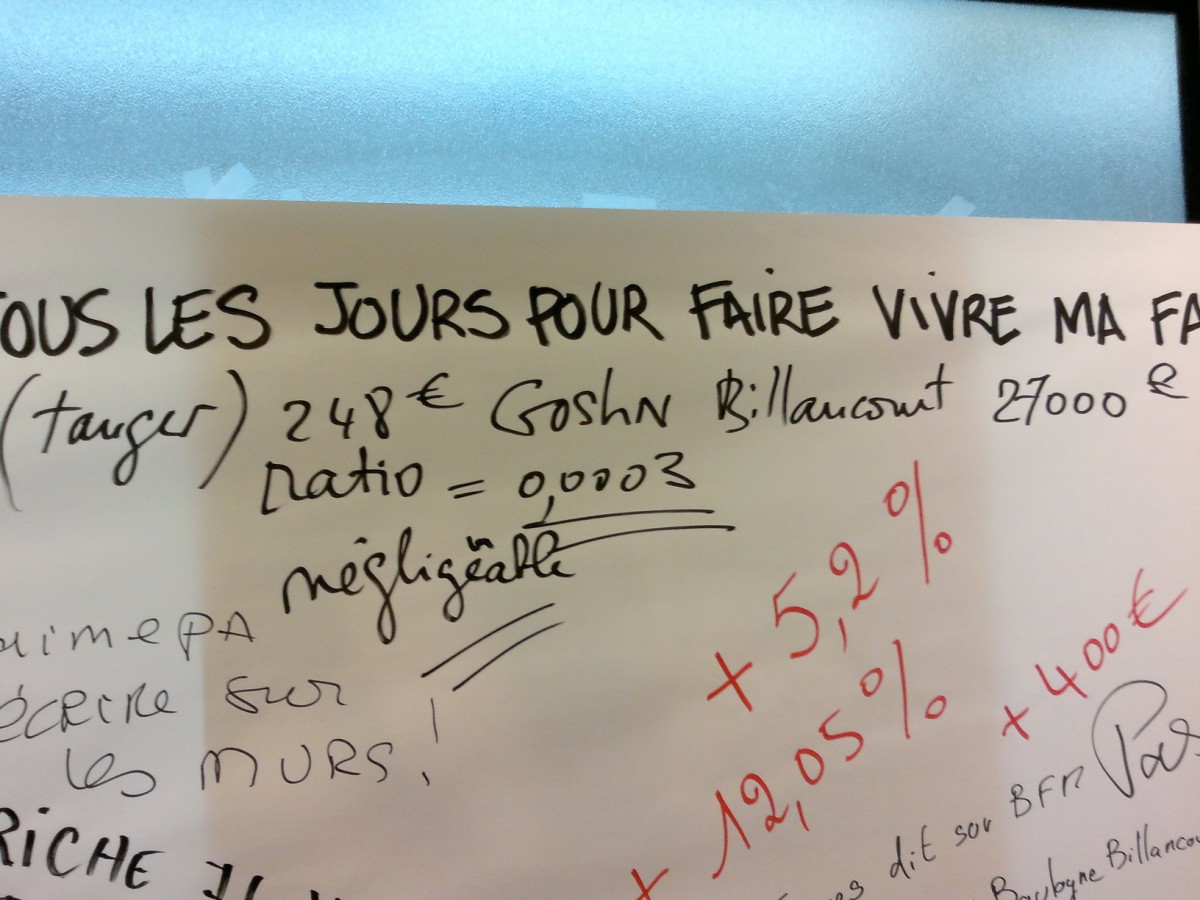 OUS LES JOURS POUR FAIRE VIVRE MA FA
(tanger) 248 € GoshN Billancourt 27000 e
ratio = 0,0003
négligeable
aime PA
écrire sur
les MURS !
+ 5,2 %
+ 12,05 %
+ 400 €
dit sur BFM
Billancou
RICHE